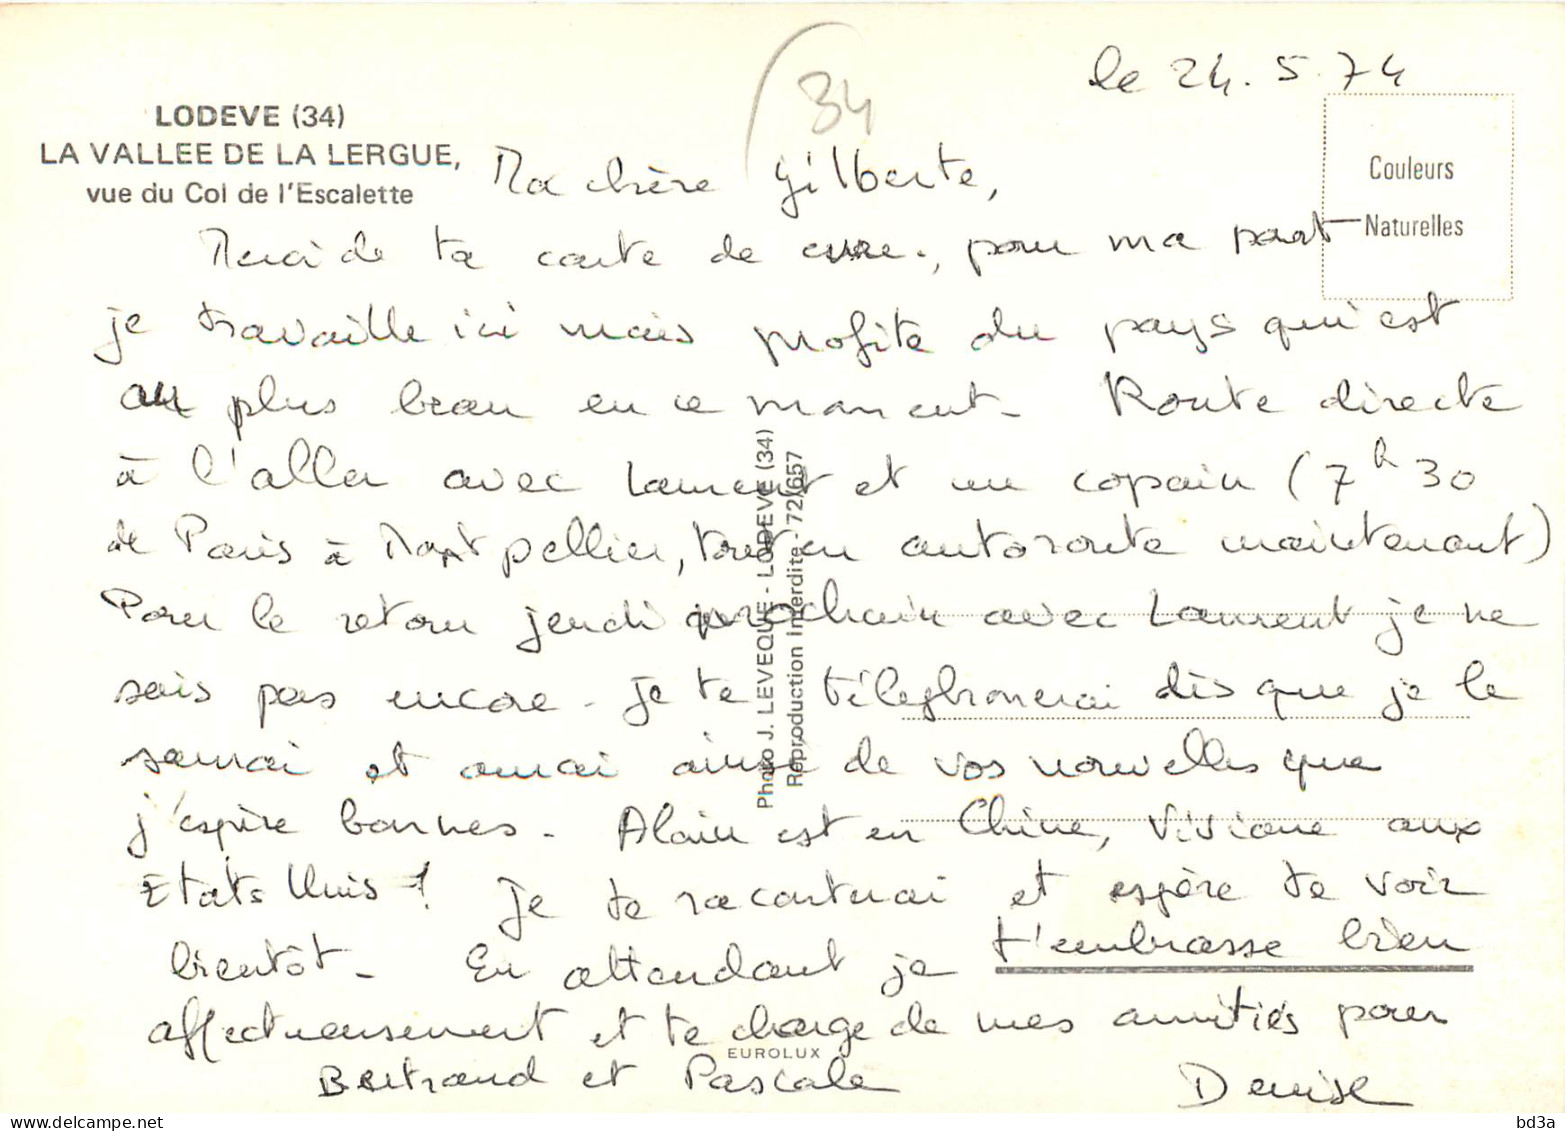 le 24.5.74
34
LODEVE (34)
LA VALLEE DE LA LERGUE,
vue du Col de l'Escalette
Couleurs
Naturelles
Ma chère Gilberte,
Merci de ta carte de cure., pour ma part
je travaille ici mais profite du pays qui est
au plus beau en ce moment - Route directe
à l'aller avec Laurent et un copain (7h30
de Paris à Montpellier, tout en autoroute maintenant)
Pour le retour jeudi prochain avec Laurent je ne
sais pas encore - Je te télephonerai dès que je le
saurai et aurai ainsi de vos nouvelles que
j'espère bonnes - Alain est en Chine, Viviane aux
Etats Unis ! Je te raconterai et espère te voir
bientôt - En attendant je t'embrasse bien
affectueusement et te charge de mes amitiés pour
Bertrand et Pascale
Denise
Photo J. LEVEQUE - LODEVE (34)
Reproduction Interdite - 72/657
EUROLUX
delcampe.net
bd3a